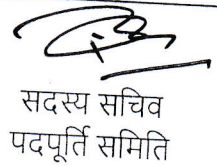 सदस्य सचिव
पदपूर्ति समिति